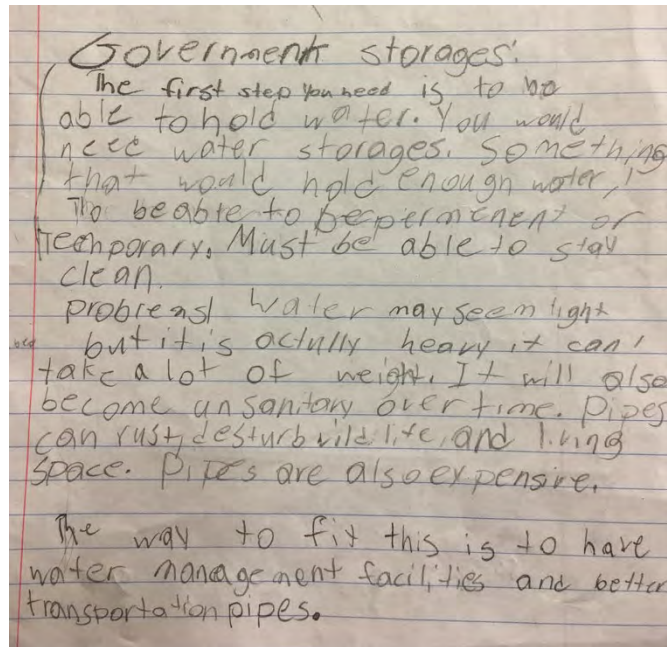 Government storages:
The first step you need is to be
able to hold water. You would
need water storages. Something
that would hold enough water,
To be able to be perminent or
Temporary. Must be able to stay
clean.
problems! Water may seem light
but it is actully heavy it can
take a lot of weight. It will also
become unsanitary over time. Pipes
can rust, desturb wild life, and living
space. Pipes are also expensive.
The way to fix this is to have
water management facilities and better
transportation pipes.